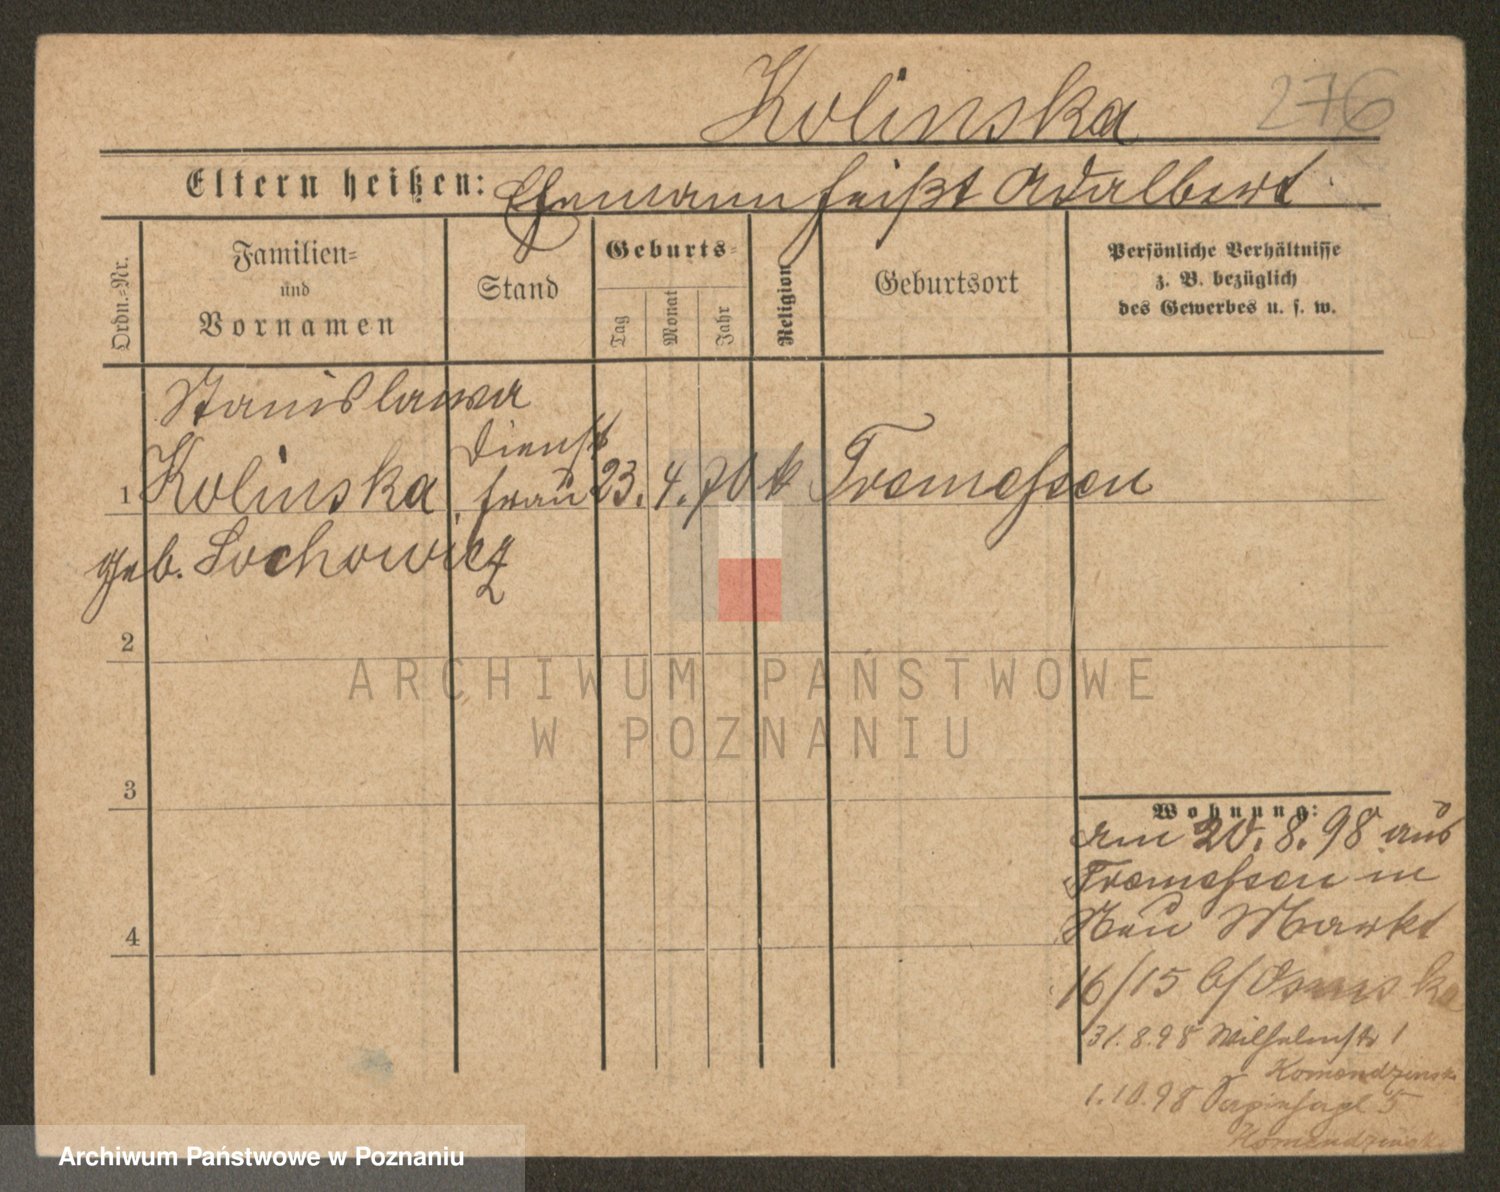 Kolinska
276
Eltern heißen: Ehemann heißt Adalbert
Ordn.-Nr.
Familien-
und
Vornamen
Stand
Geburts-
Tag
Monat
Jahr
Religion
Geburtsort
Persönliche Verhältnisse
z. B. bezüglich
des Gewerbes u. s. w.
Stanislawa
Dienst
1 Kolinska, frau 23. 4. 70 k Tremessen
geb. Lochowicz
2
3
4
Wohnung:
am 20. 8. 98 aus
Tremessen in
Neu Markt
16/15 b/
31.8.98 Wilhelmstr 1
1.10.98 5
ARCHIWUM PAŃSTWOWE
W POZNANIU
Archiwum Państwowe w Poznaniu